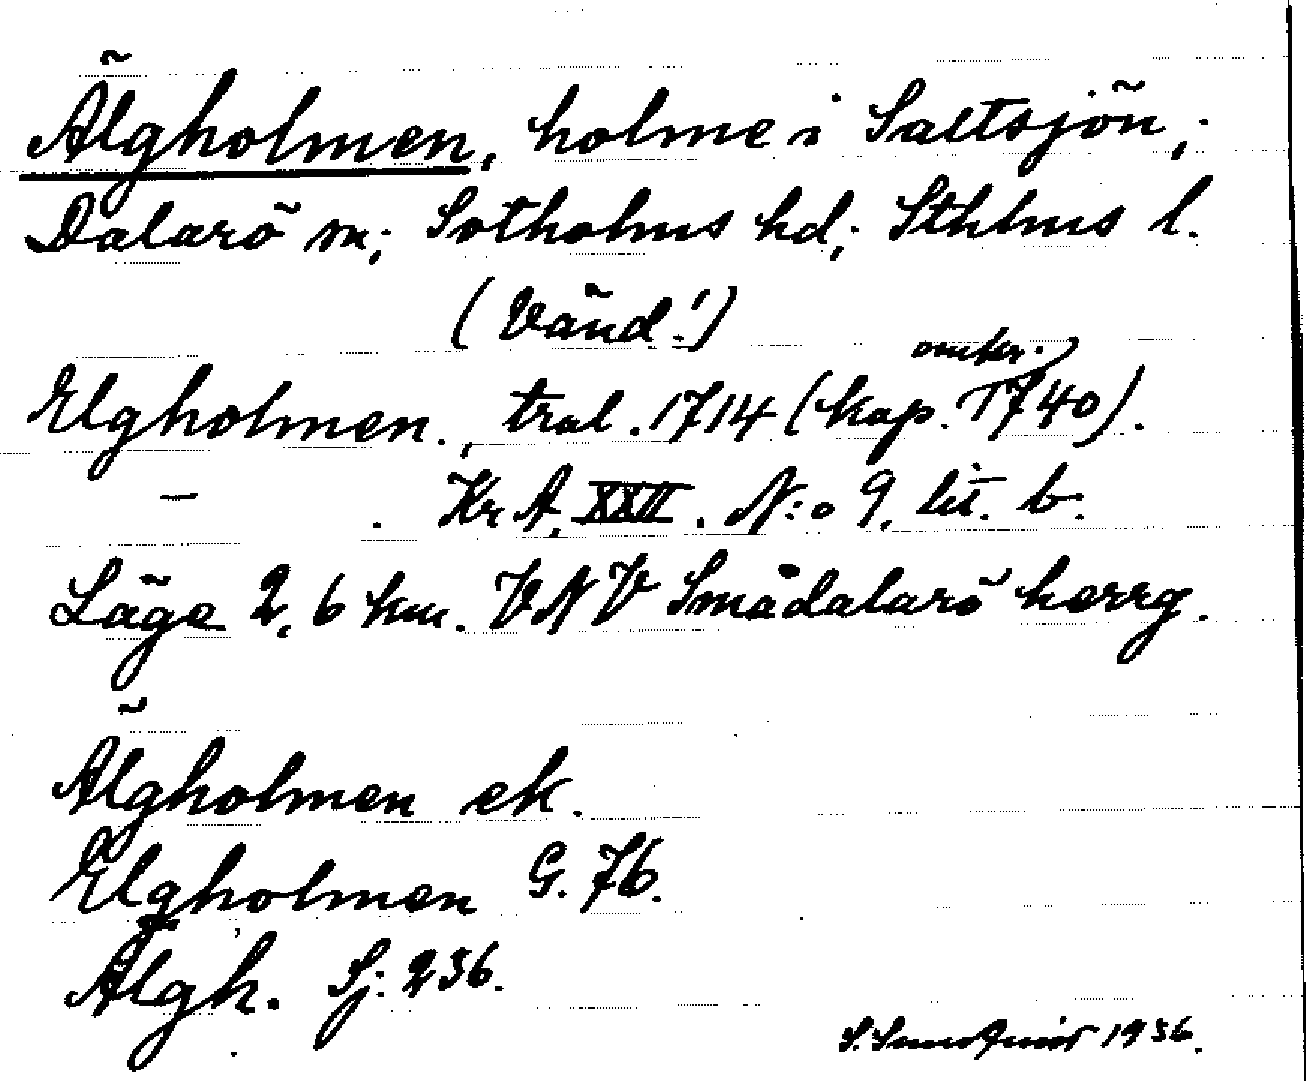 Älgholmen, holme i Saltsjön,
Dalarö sn; Sotholms hd; Sthlms l.
(Vänd!)
omkr.
Elgholmen., tral. 1714 (kop. 1740).
— . Kr A. XXII. N:o 9. lit. b.
Läge 2,6 km. VNV Smådalarö herrg.
Älgholmen ek.
Elgholmen G. 76.
Älgh. Sj: 236.
S. 1936.